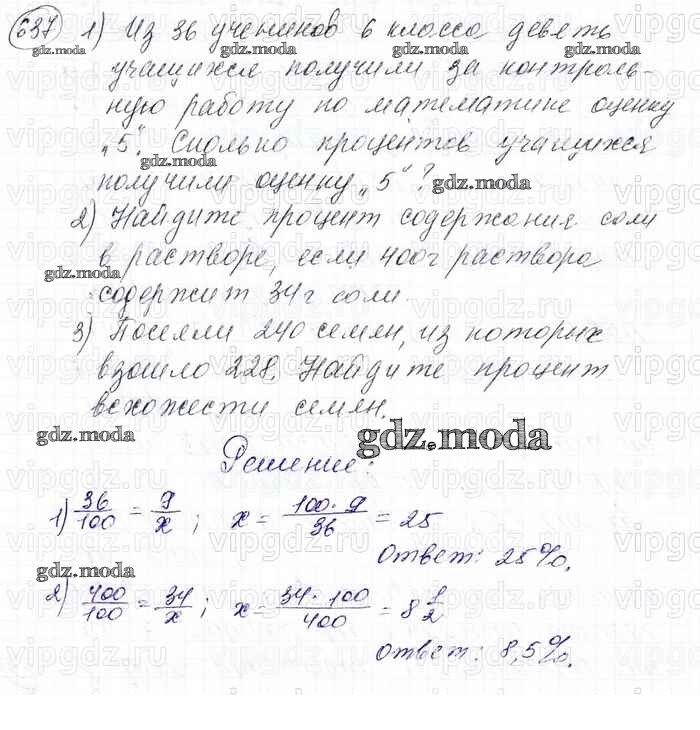 637 1) Из 36 учеников 6 класса девять
учащихся получили за контроль-
ную работу по математике оценку
„5“. Сколько процентов учащихся
получили оценку „5“?
2) Найдите процент содержания соли
в растворе, если 400г раствора
содержит 34г соли.
3) Посеяли 240 семян, из которых
взошло 228. Найдите процент
всхожести семян.
Решение:
1) 36/100 = 9/x ; x = 100·9/36 = 25
Ответ: 25%.
2) 400/100 = 34/x ; x = 34·100/400 = 8 1/2
Ответ: 8,5%.
gdz.moda
vipgdz.ru